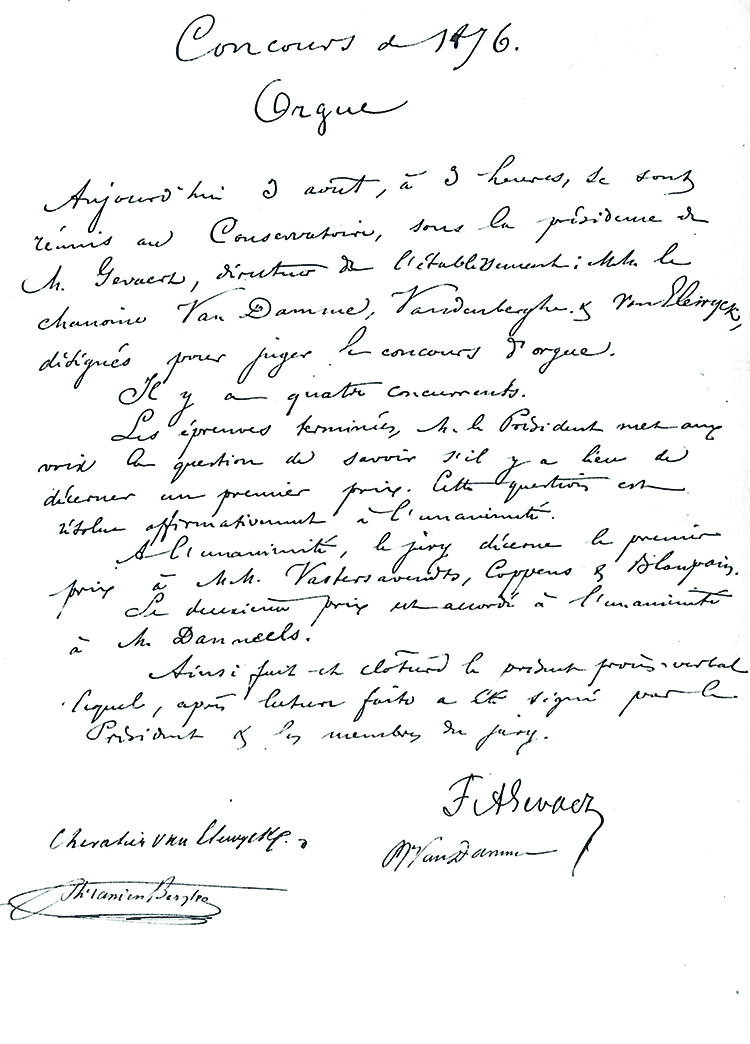 Concours de 1876.
Orgue
Aujourd'hui 3 août, à 3 heures, se sont
réunis au Conservatoire, sous la présidence de
M. Gevaert, directeur de l'établissement : MM. le
chanoine Van Damme, Vandenberghe & Van Elewyck,
désignés pour juger le concours d'orgue.
Il y a quatre concurrents.
Les épreuves terminées, M. le Président met aux
voix la question de savoir s'il y a lieu de
décerner un premier prix. Cette question est
résolue affirmativement à l'unanimité.
A l'unanimité, le jury décerne le premier
prix à MM. Vastersavendts, Coppens & Blanpain.
Le deuxième prix est accordé à l'unanimité
à M. Danneels.
Ainsi fait et clôturé le présent procès-verbal
lequel, après lecture faite a été signé par le
Président & les membres du jury.
F A Gevaert
Chevalier van Elewyck
Van Damme